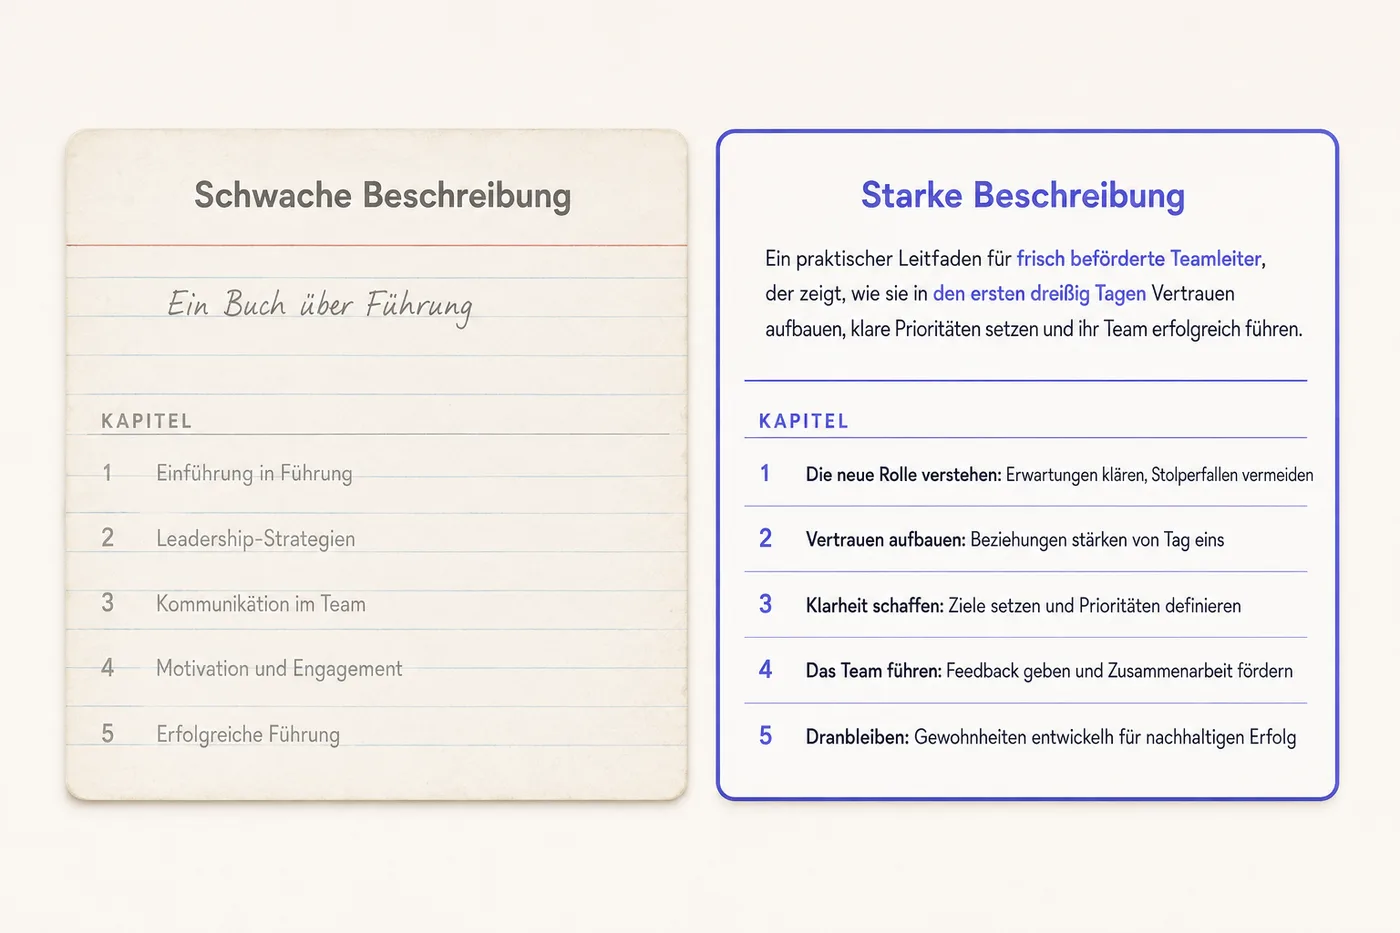 Schwache Beschreibung
Ein Buch über Führung
KAPITEL
1 Einführung in Führung
2 Leadership-Strategien
3 Kommunikätion im Team
4 Motivation und Engagement
5 Erfolgreiche Führung
Starke Beschreibung
Ein praktischer Leitfaden für frisch beförderte Teamleiter,
der zeigt, wie sie in den ersten dreißig Tagen Vertrauen
aufbauen, klare Prioritäten setzen und ihr Team erfolgreich führen.
KAPITEL
1 Die neue Rolle verstehen: Erwartungen klären, Stolperfallen vermeiden
2 Vertrauen aufbauen: Beziehungen stärken von Tag eins
3 Klarheit schaffen: Ziele setzen und Prioritäten definieren
4 Das Team führen: Feedback geben und Zusammenarbeit fördern
5 Dranbleiben: Gewohnheiten entwickelh für nachhaltigen Erfolg